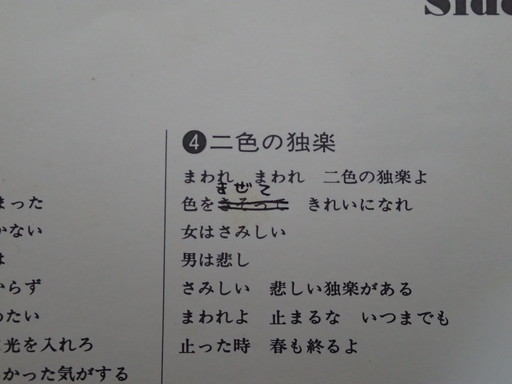 Side
❹二色の独楽
まわれ　まわれ　二色の独楽よ
まぜて
色をきそって　きれいになれ
女はさみしい
男は悲し
さみしい　悲しい独楽がある
まわれよ　止まるな　いつまでも
止った時　春も終るよ
まった
かない
は
からず
めたい
光を入れろ
かった気がする